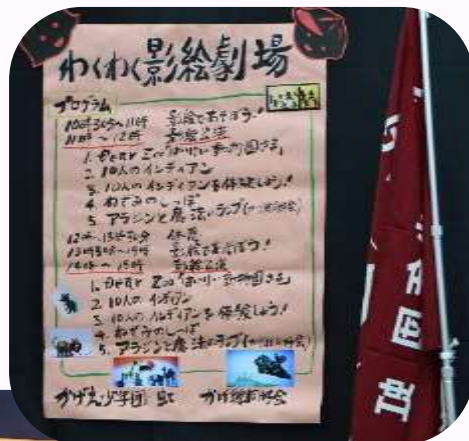 わくわく影絵劇場
プログラム
10時30分～11時 影絵であそぼう！
11時～12時 影絵公演
1. Dear Zoo
2. 10人のインディアン
3. 10人のインディアンを体験しよう！
4. ねずみのしっぽ
5. アラジンと魔法のランプ
12時～13時30分 休憩
13時30分～14時 影絵であそぼう！
14時～15時 影絵公演
1. Dear Zoo
2. 10人のインディアン
3. 10人のインディアンを体験しよう！
4. ねずみのしっぽ
5. アラジンと魔法のランプ
かげえ少年団